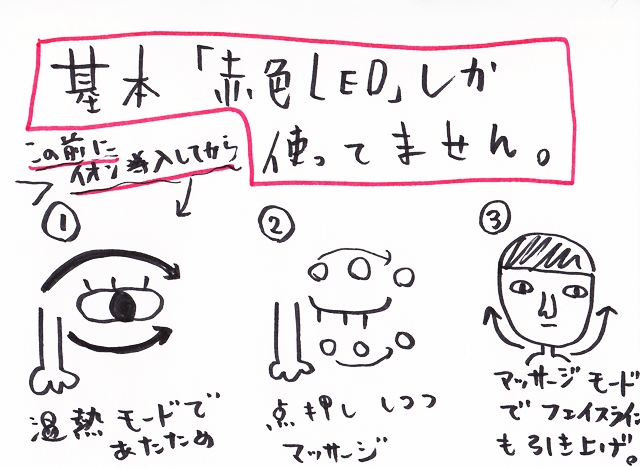 基本「赤色LED」しか
使ってません。
この前に
イオン導入してから
①
②
③
温熱モードで
あたため
点押ししつつ
マッサージ
マッサージモード
でフェイスライン
も引き上げ。